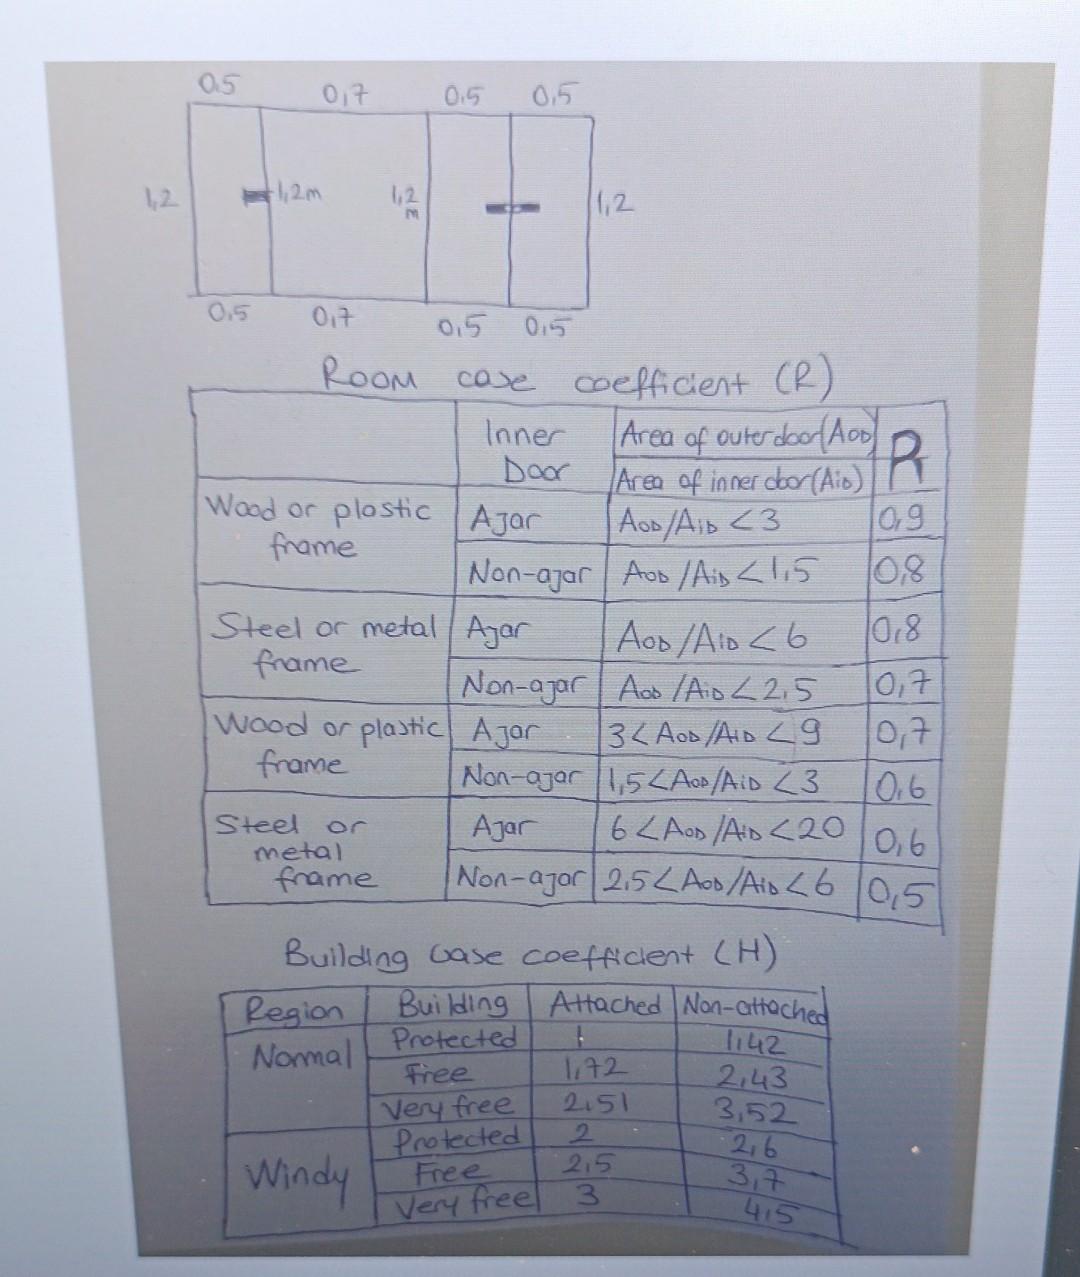 0.5 0,7 0.5 0,5
1,2 1,2m 1,2 m 1,2
0.5 0,7 0,5 0,5
Room case coefficient (R)
Inner Door Area of outer door (AOD) R
Area of inner door (AiD)
Wood or plastic frame Ajar AOD/AiD <3 0,9
Non-ajar AOD/AiD <1,5 0,8
Steel or metal frame Ajar AOD/AiD <6 0,8
Non-ajar AOD/AiD <2,5 0,7
Wood or plastic frame Ajar 3<AOD/AiD <9 0,7
Non-ajar 1,5<AOD/AiD <3 0,6
Steel or metal frame Ajar 6<AOD/AiD<20 0,6
Non-ajar 2,5<AOD/AiD<6 0,5
Building case coefficient (H)
Region Building Attached Non-attached
Normal Protected 1 1,42
Free 1,72 2,43
Very free 2,51 3,52
Windy Protected 2 2,6
Free 2,5 3,7
Very free 3 4,5